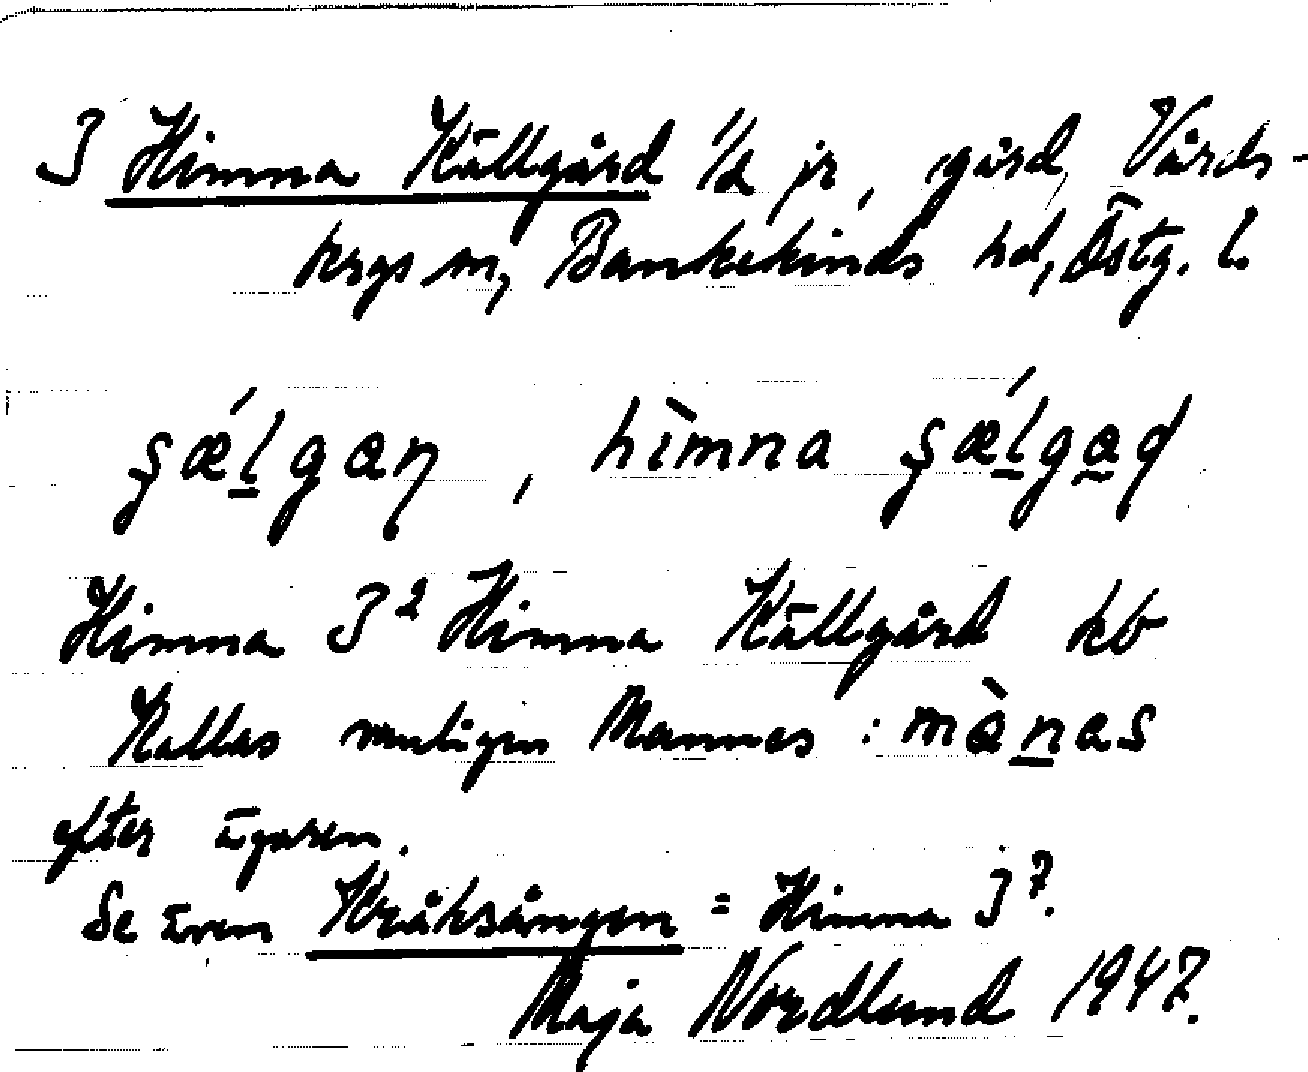 I Himna Källgård 1/2 jr, gård, Vårds-
bergs sn, Bankekinds hd, Östg. l.
ʂǽl̲gaɳ, hìmna ʂǽl̲ga̲ɖ
Himna I² Himna Källgård kb
Kallas vanligen Mannes : màn̲as
efter ägaren.
Se även Kråksången = Himna I⁷.
Maja Nordlund 1947.